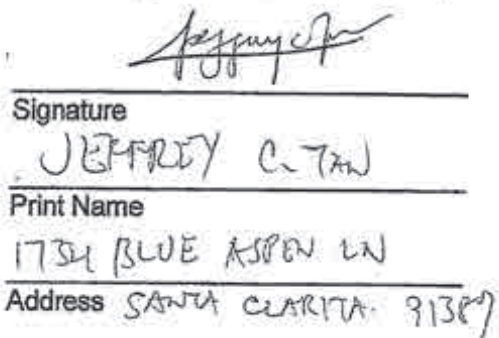 Signature
JEFFREY C. TAN
Print Name
BLUE ASPEN LN
Address SANTA CLARITA. 91387